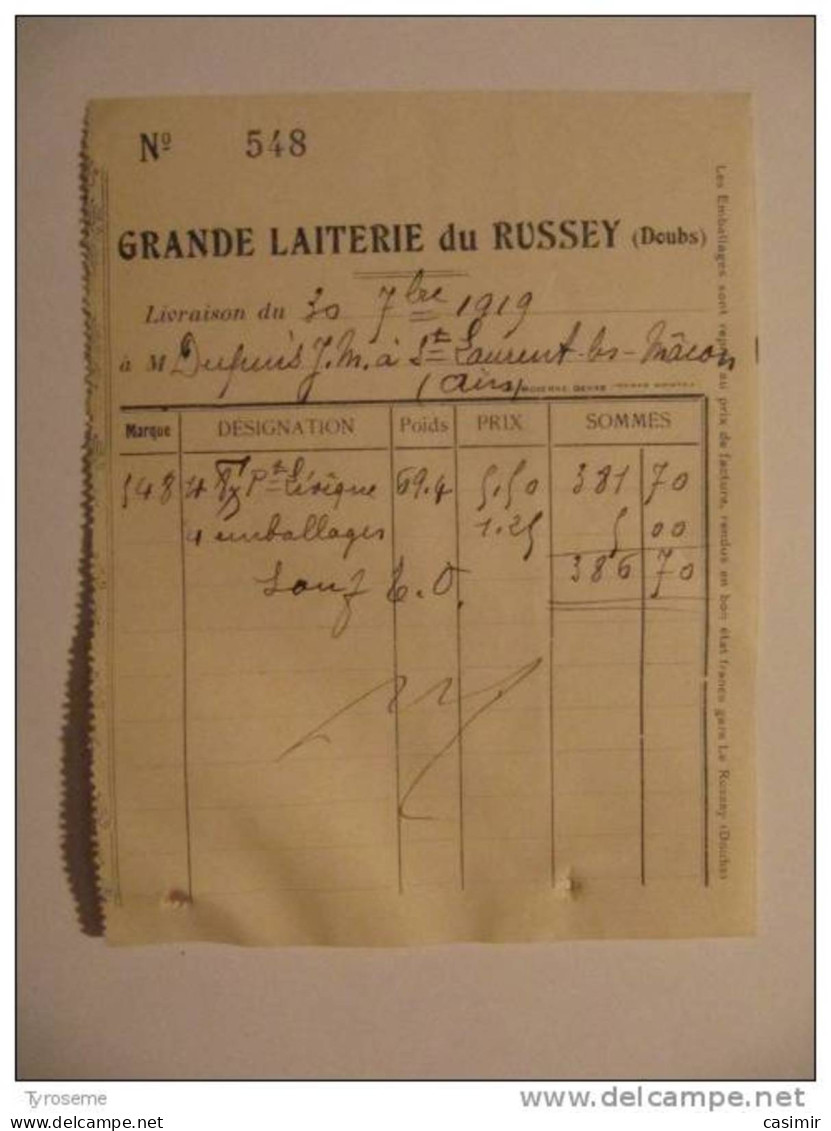 Nº 548
GRANDE LAITERIE du RUSSEY (Doubs)
Livraison du 30 7bre 1919
à M Dupuis J. M. à St Laurent-les-Mâcon
(Ain)
Marque DÉSIGNATION Poids PRIX SOMMES
548 4 Pt Lévêque 69.4 5.50 381 70
4 emballages 1.25 5 00
386 70
Les Emballages sont repris au prix de facture, rendus en bon état franco gare Le Russey (Doubs)
Tyroseme
www.delcampe.net
https://www.delcampe.net
casimir